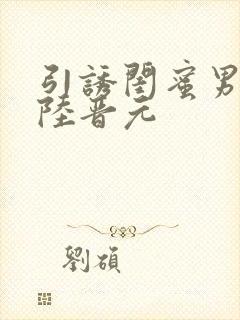 引誘閨蜜男
陸晋元
劉碩